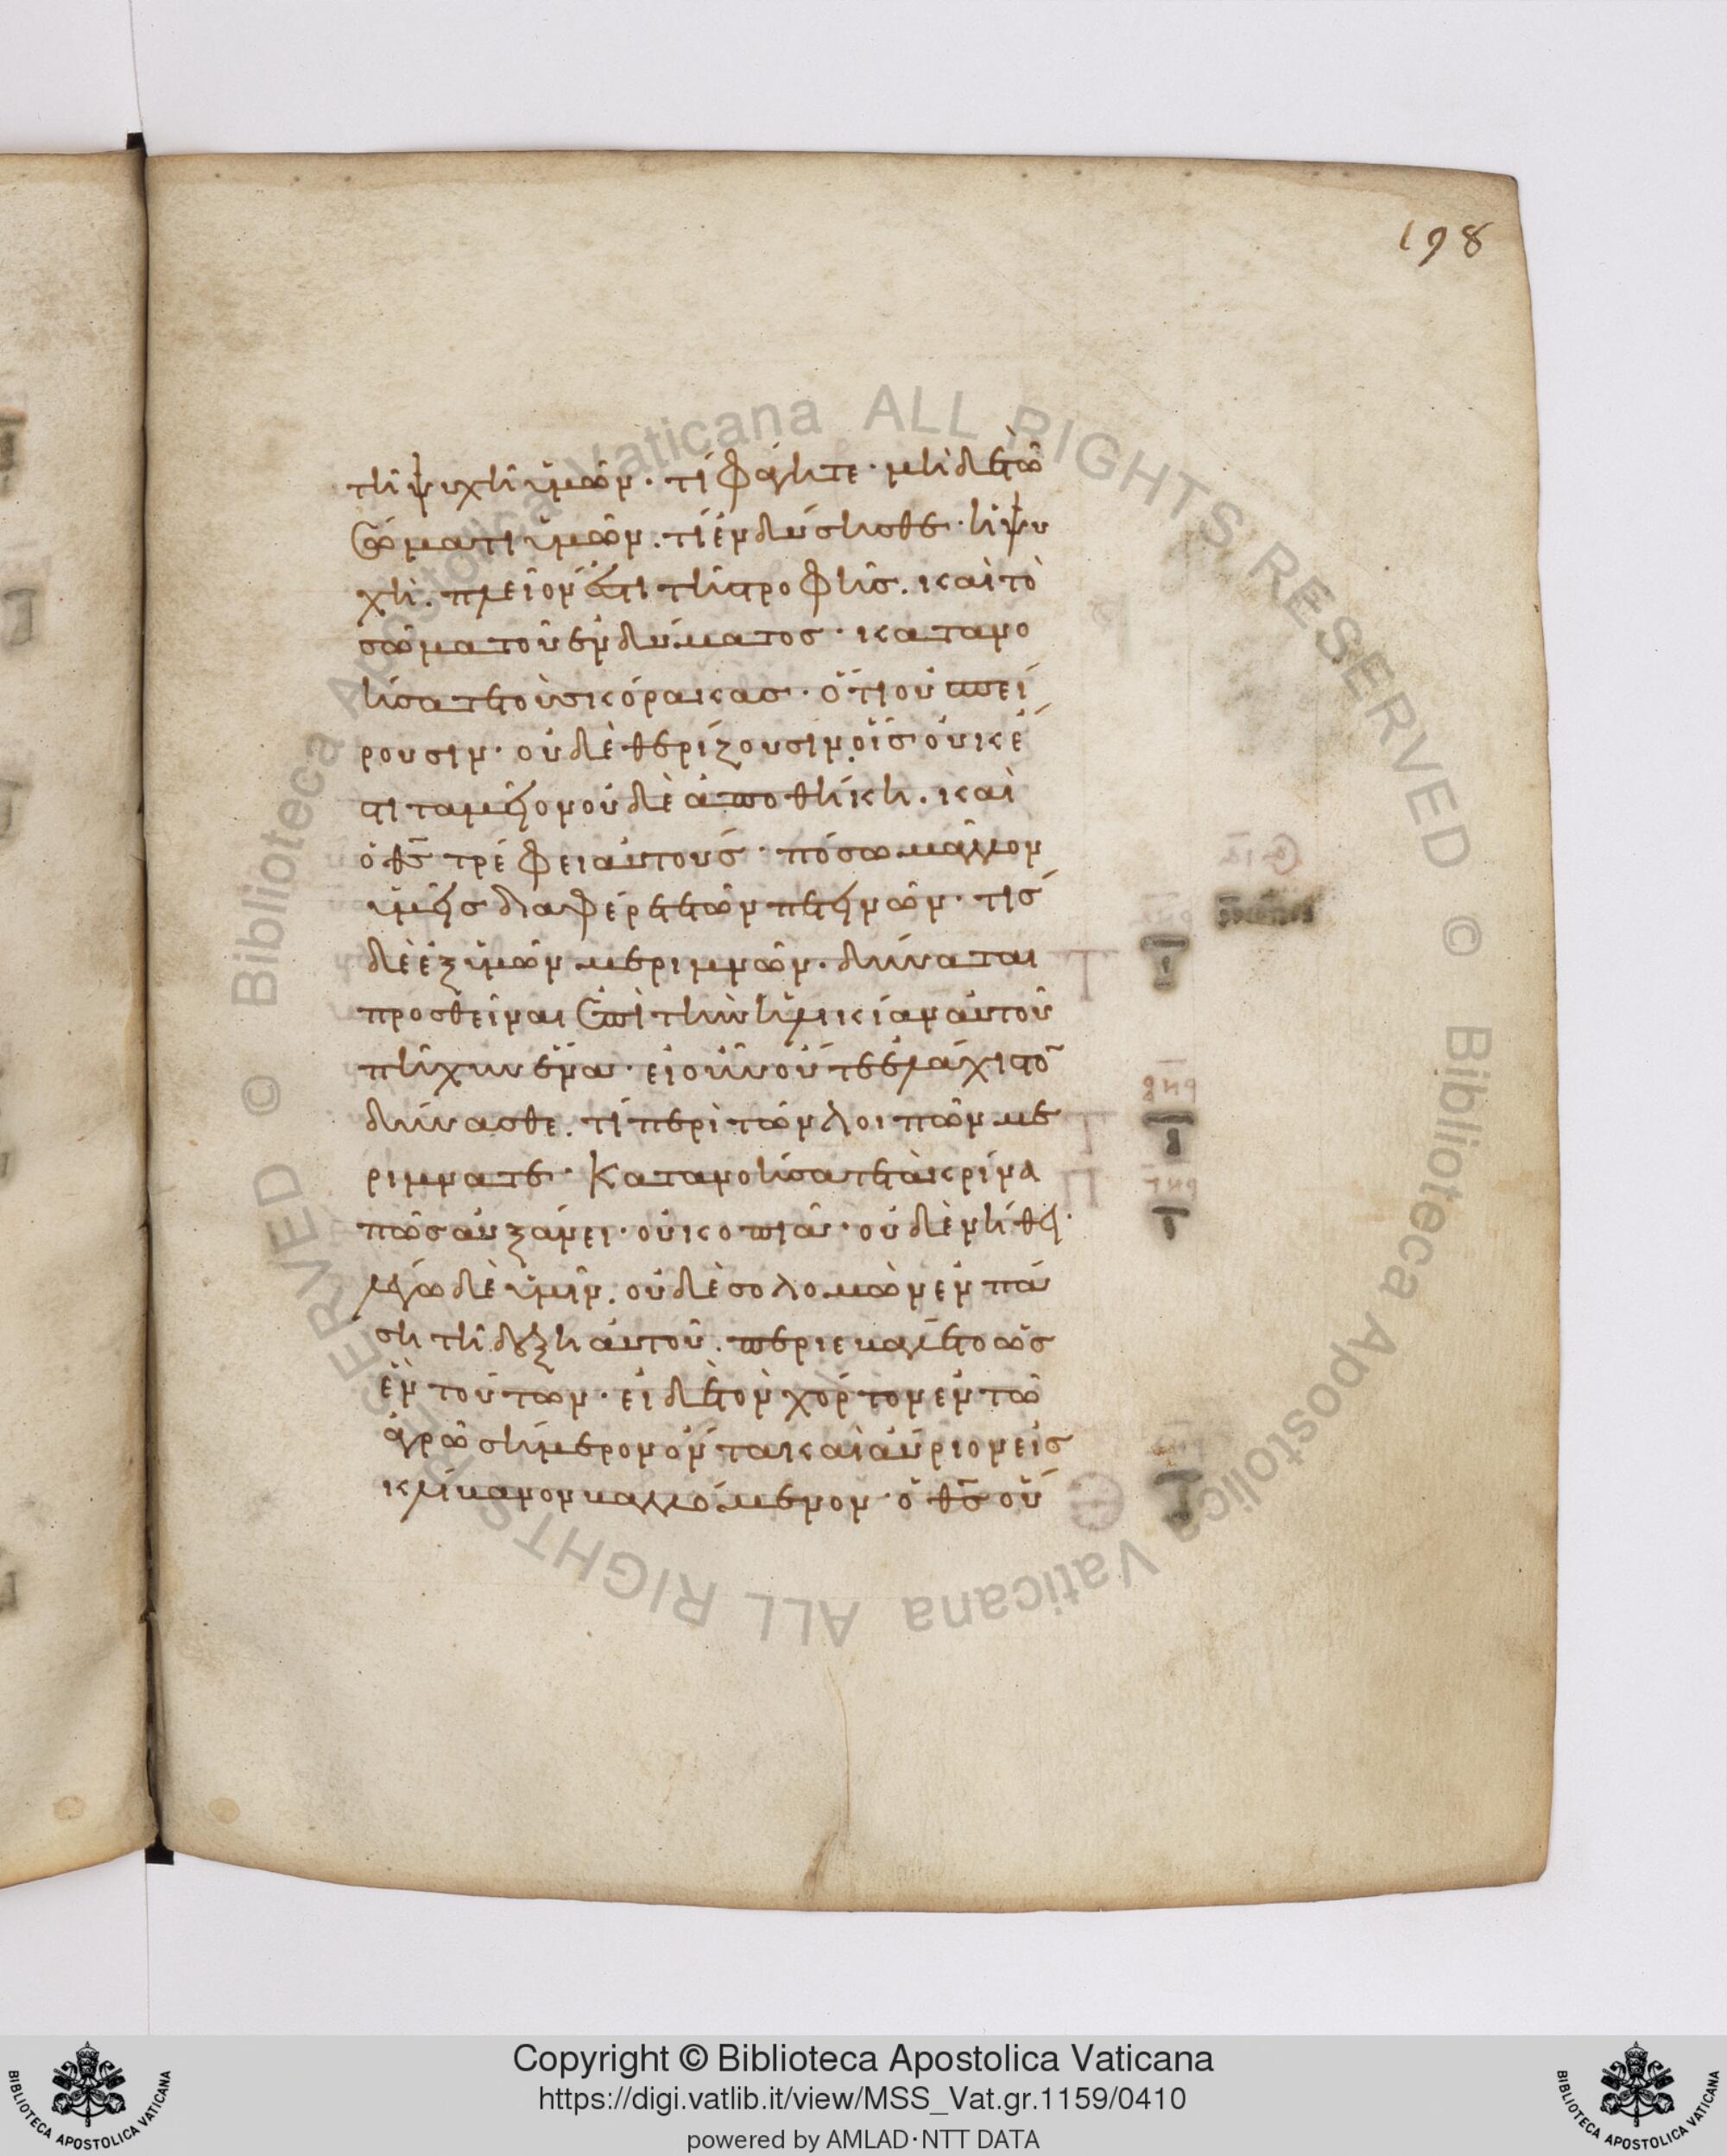 198
τῆ ψυχῆ ὑμῶν· τί φάγητε· μὴ δὲ τῶ
σώματι ὑμῶν· τί ἐνδύσησθε· ἡ ψυ
χὴ. πλεῖον ἐστι τῆς τροφῆς. καὶ τὸ
σῶμα τοῦ ἐνδύματος· κατανο
ήσατε τοὺς κόρακας· ὅτι οὐ σπεί
ρουσιν· οὐδὲ θερίζουσιν. οἷς οὐκ ἔ
στι ταμεῖον οὐδὲ ἀποθήκη. καὶ
ὁ θς τρέφει αὐτούς· πόσω μᾶλλον
ὑμεῖς διαφέρετε τῶν πετεινῶν· τίς
δὲ ἐξ ὑμῶν μεριμνῶν. δύναται
προσθεῖναι ἐπὶ τὴν ἡλικίαν αὐτοῦ
πῆχυν ἕνα· εἰ οὖν οὔτε ἐλάχιστο
δύνασθε. τί περὶ τῶν λοιπῶν με
ριμνατε· Κατανοήσατε τὰ κρίνα
πῶς αὐξάνει· οὐ κοπιᾶ· οὐδὲ νήθει·
λέγω δὲ ὑμῖν. οὐδὲ σολομὼν ἐν πά
ση τῆ δόξη αὐτοῦ. περιεβάλετο ὡς
ἓν τούτων· εἰ δὲ τὸν χόρτον ἐν τῶ
ἀγρῶ σήμερον ὄντα καὶ αὔριον εἰς
κλίβανον βαλλόμενον· ὁ θς οὕ
Copyright © Biblioteca Apostolica Vaticana
https://digi.vatlib.it/view/MSS_Vat.gr.1159/0410
powered by AMLAD·NTT DATA
BIBLIOTECA APOSTOLICA VATICANA
BIBLIOTECA APOSTOLICA VATICANA
© Biblioteca Apostolica Vaticana ALL RIGHTS RESERVED
© Biblioteca Apostolica Vaticana ALL RIGHTS RESERVED